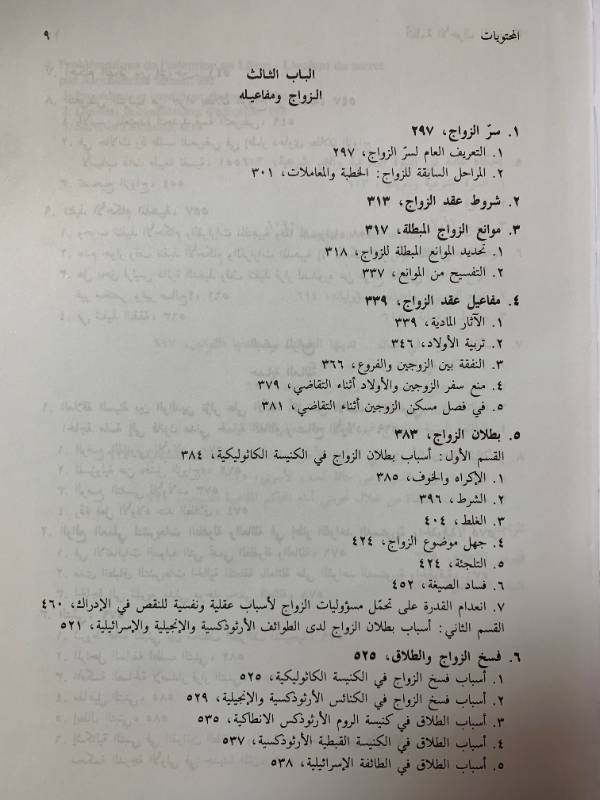 المحتويات ٩
الباب الثالث
الزواج ومفاعيله
١. سرّ الزواج، ٢٩٧
١. التعريف العام لسرّ الزواج، ٢٩٧
٢. المراحل السابقة للزواج: الخطبة والمعاملات، ٣٠١
٢. شروط عقد الزواج، ٣١٣
٣. موانع الزواج المبطلة، ٣١٧
١. تحديد الموانع المبطلة للزواج، ٣١٨
٢. التفسيح من الموانع، ٣٣٧
٤. مفاعيل عقد الزواج، ٣٣٩
١. الآثار المادية، ٣٣٩
٢. تربية الأولاد، ٣٤٦
٣. النفقة بين الزوجين والفروع، ٣٦٦
٤. منع سفر الزوجين والأولاد أثناء التقاضي، ٣٧٩
٥. في فصل مسكن الزوجين أثناء التقاضي، ٣٨١
٥. بطلان الزواج، ٣٨٣
القسم الأول: أسباب بطلان الزواج في الكنيسة الكاثوليكية، ٣٨٤
١. الإكراه والخوف، ٣٨٥
٢. الشرط، ٣٩٦
٣. الغلط، ٤٠٤
٤. جهل موضوع الزواج، ٤٢٤
٥. التلجئة، ٤٢٤
٦. فساد الصيغة، ٤٥٢
٧. انعدام القدرة على تحمّل مسؤوليات الزواج لأسباب عقلية ونفسية للنقص في الإدراك، ٤٦٠
القسم الثاني: أسباب بطلان الزواج لدى الطوائف الأرثوذكسية والإنجيلية والإسرائيلية، ٥٢١
٦. فسخ الزواج والطلاق، ٥٢٥
١. أسباب فسخ الزواج في الكنيسة الكاثوليكية، ٥٢٥
٢. أسباب فسخ الزواج في الكنائس الأرثوذكسية والإنجيلية، ٥٢٩
٣. أسباب الطلاق في كنيسة الروم الأرثوذكس الانطاكية، ٥٣٥
٤. أسباب الطلاق في الكنيسة القبطية الأرثوذكسية، ٥٣٧
٥. أسباب الطلاق في الطائفة الإسرائيلية، ٥٣٨